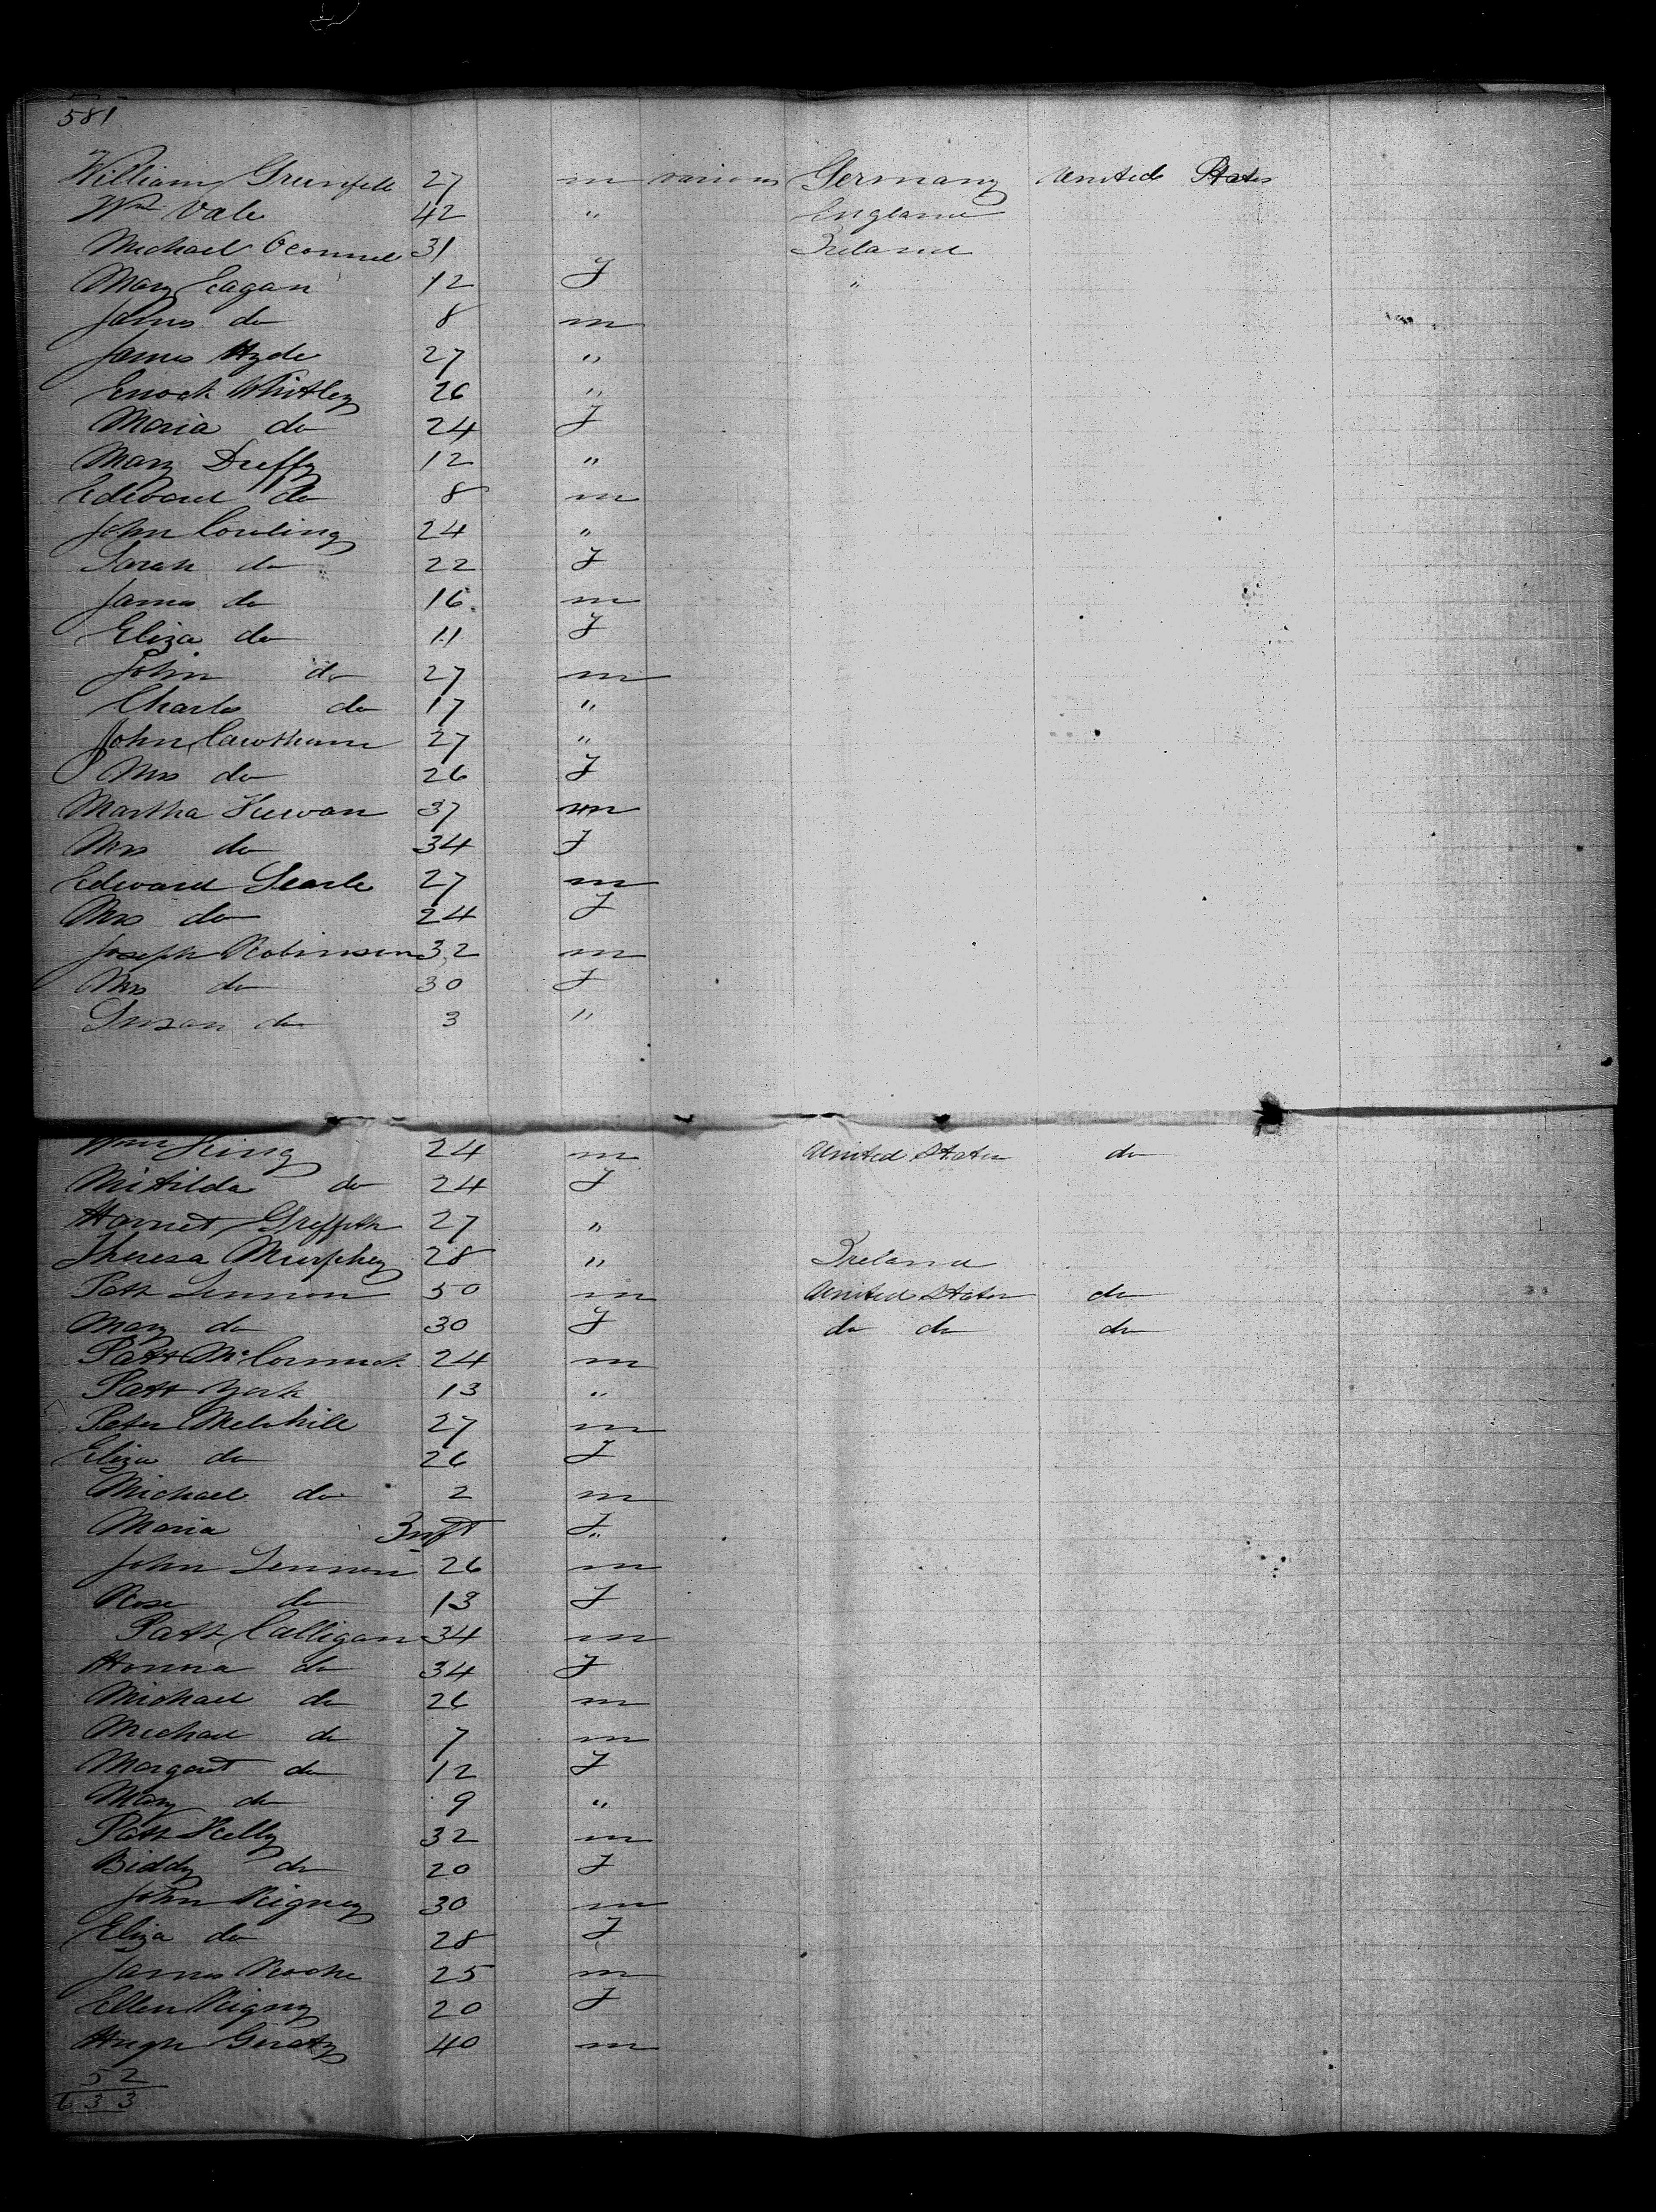 581
William Grunfell 27 m various Germany United States
Wm Vale 42 " England
Michael Oconnel 31 Ireland
Mary Eagan 12 F "
James do 8 m
James Hyde 27 "
Enock Whitley 26 "
Maria do 24 F
Mary Duffy 12 "
Edward do 8 m
John Cowling 24 "
Sarah do 22 F
James do 16 m
Eliza do 11 F
John do 27 m
Charles do 17 "
John Cawthum 27 "
Mrs do 26 F
Martha 37 m
Mrs do 34 F
Edward Searle 27 m
Mrs do 24 F
Joseph Robinson 32 m
Mrs do 30 F
Susan do 3 "
Wm King 24 m United States do
Mitilda do 24 F
Harriet Griffith 27 "
Theresa Murphey 28 " Ireland
Patt Lennon 50 m United States do
Mary do 30 F do do do
Patt McCormick 24 m
Patt York 13 "
Peter 27 m
Eliza do 26 F
Michael do 2 m
Maria Inft F "
John Lennon 26 m
Rose do 13 F
Patt Calligan 34 m
Honora do 34 F
Michael do 26 m
Michael do 7 m
Margaret do 12 F
Mary do 9 "
Patt Kelly 32 m
Biddy do 20 F
John Rigney 30 m
Eliza do 28 F
James Roche 25 m
Ellen Rigny 20 F
Hugh Geraty 40 m
52
633